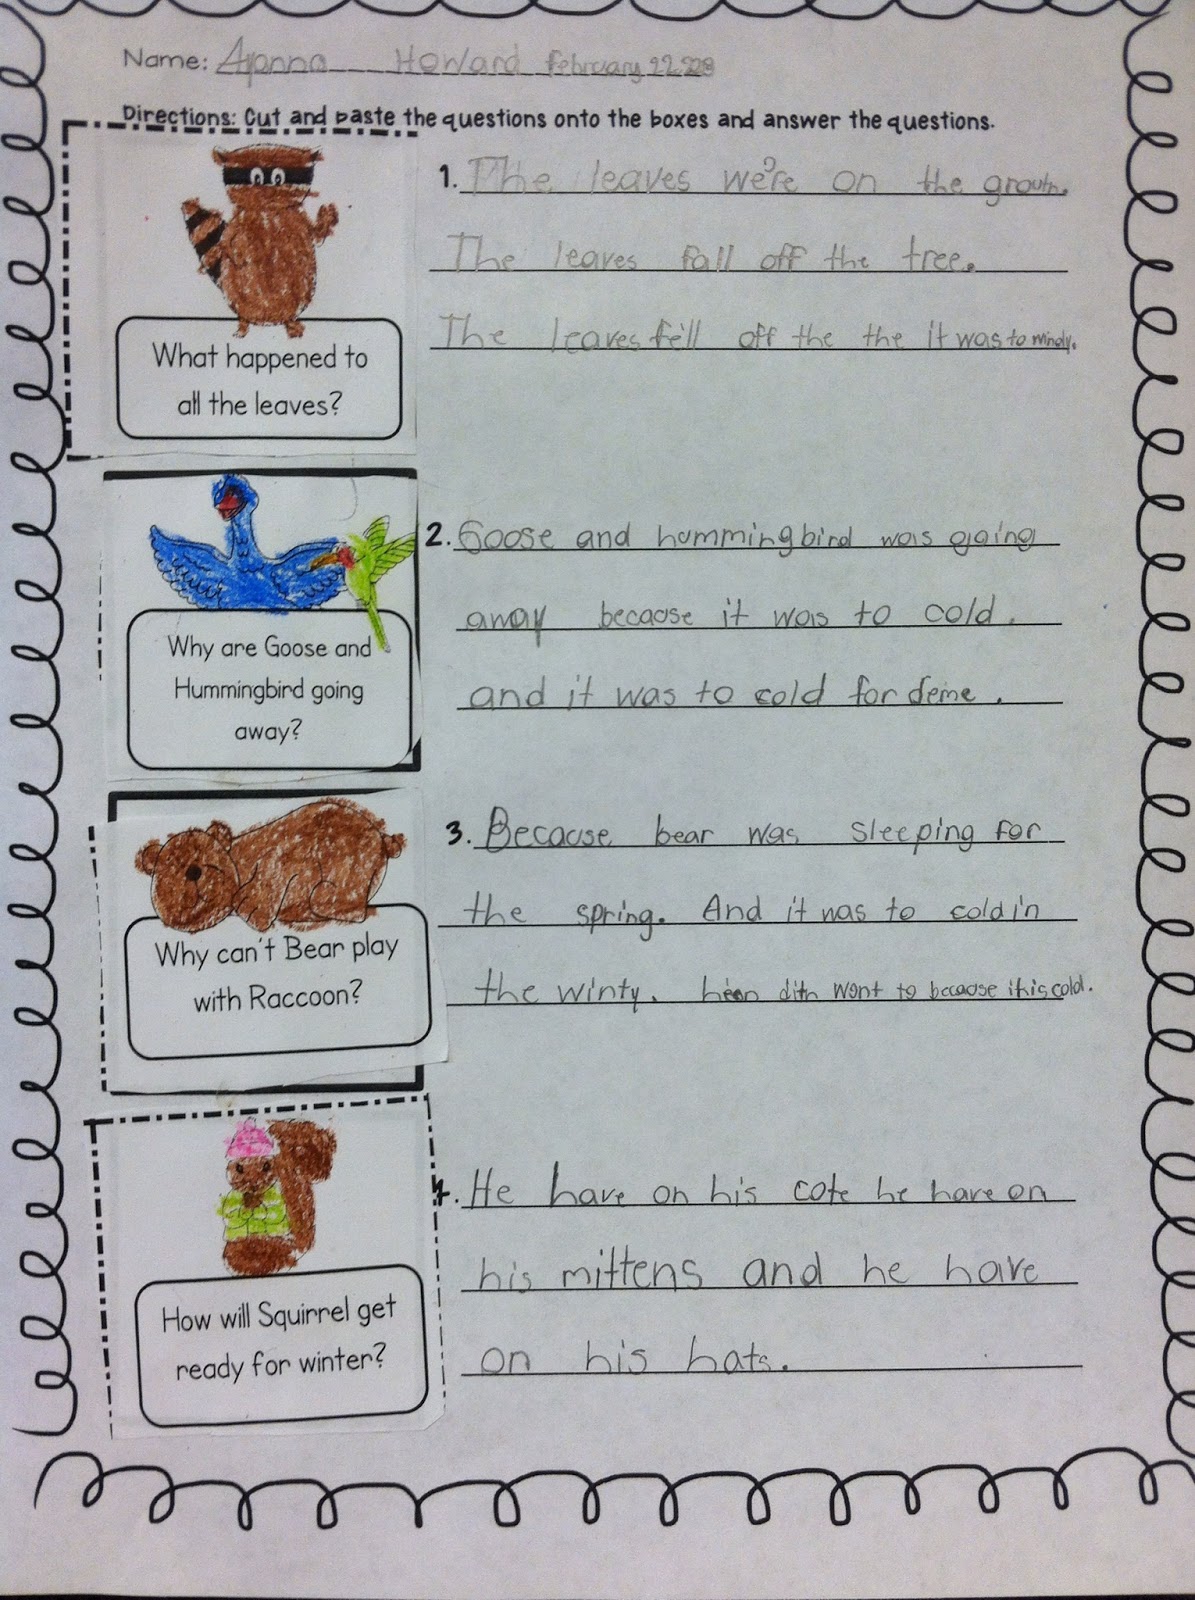 Name: Ayanna Howard February 22
Directions: Cut and paste the questions onto the boxes and answer the questions.
What happened to
all the leaves?
1. The leaves we're on the
The leaves fall off the tree.
The leaves fell off the the it was to windy.
Why are Goose and
Hummingbird going
away?
2. Goose and hummingbird was going
away because it was to cold.
and it was to cold for deme.
Why can't Bear play
with Raccoon?
3. Because bear was sleeping for
the spring. And it was to cold in
the winty. dith want to because it is cold.
How will Squirrel get
ready for winter?
4. He have on his cote he have on
his mittens and he have
on his hats.